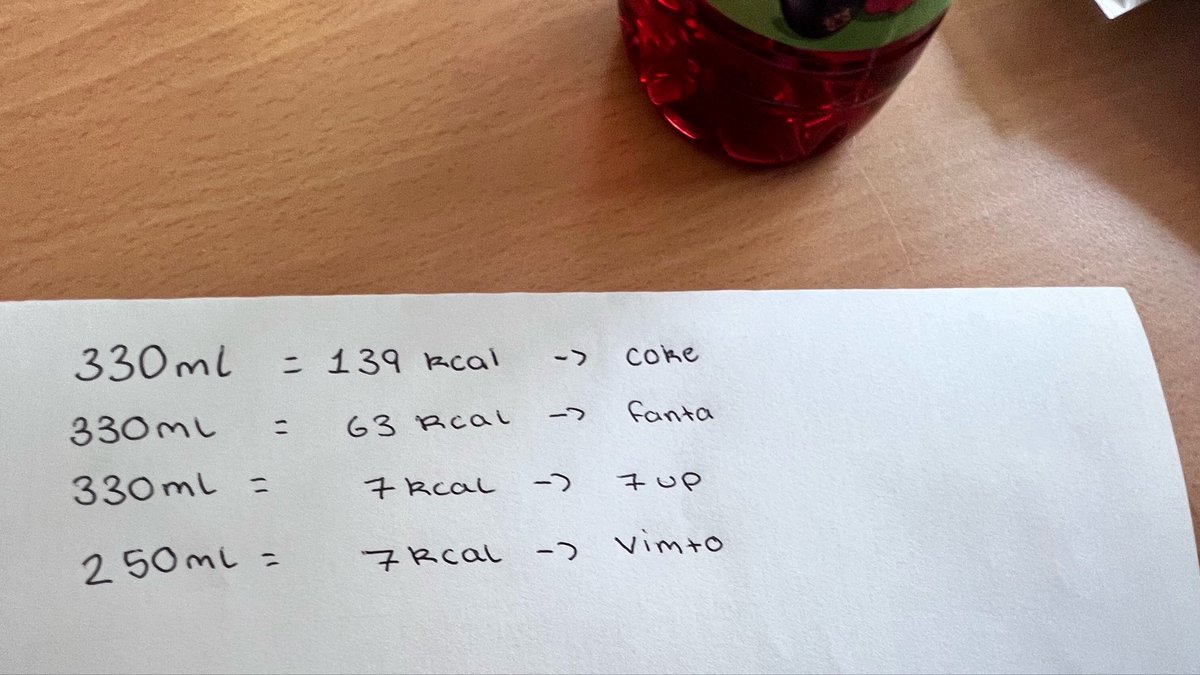 330ml = 139 kcal -> coke
330ml = 63 kcal -> fanta
330ml = 7 kcal -> 7up
250ml = 7 kcal -> vimto